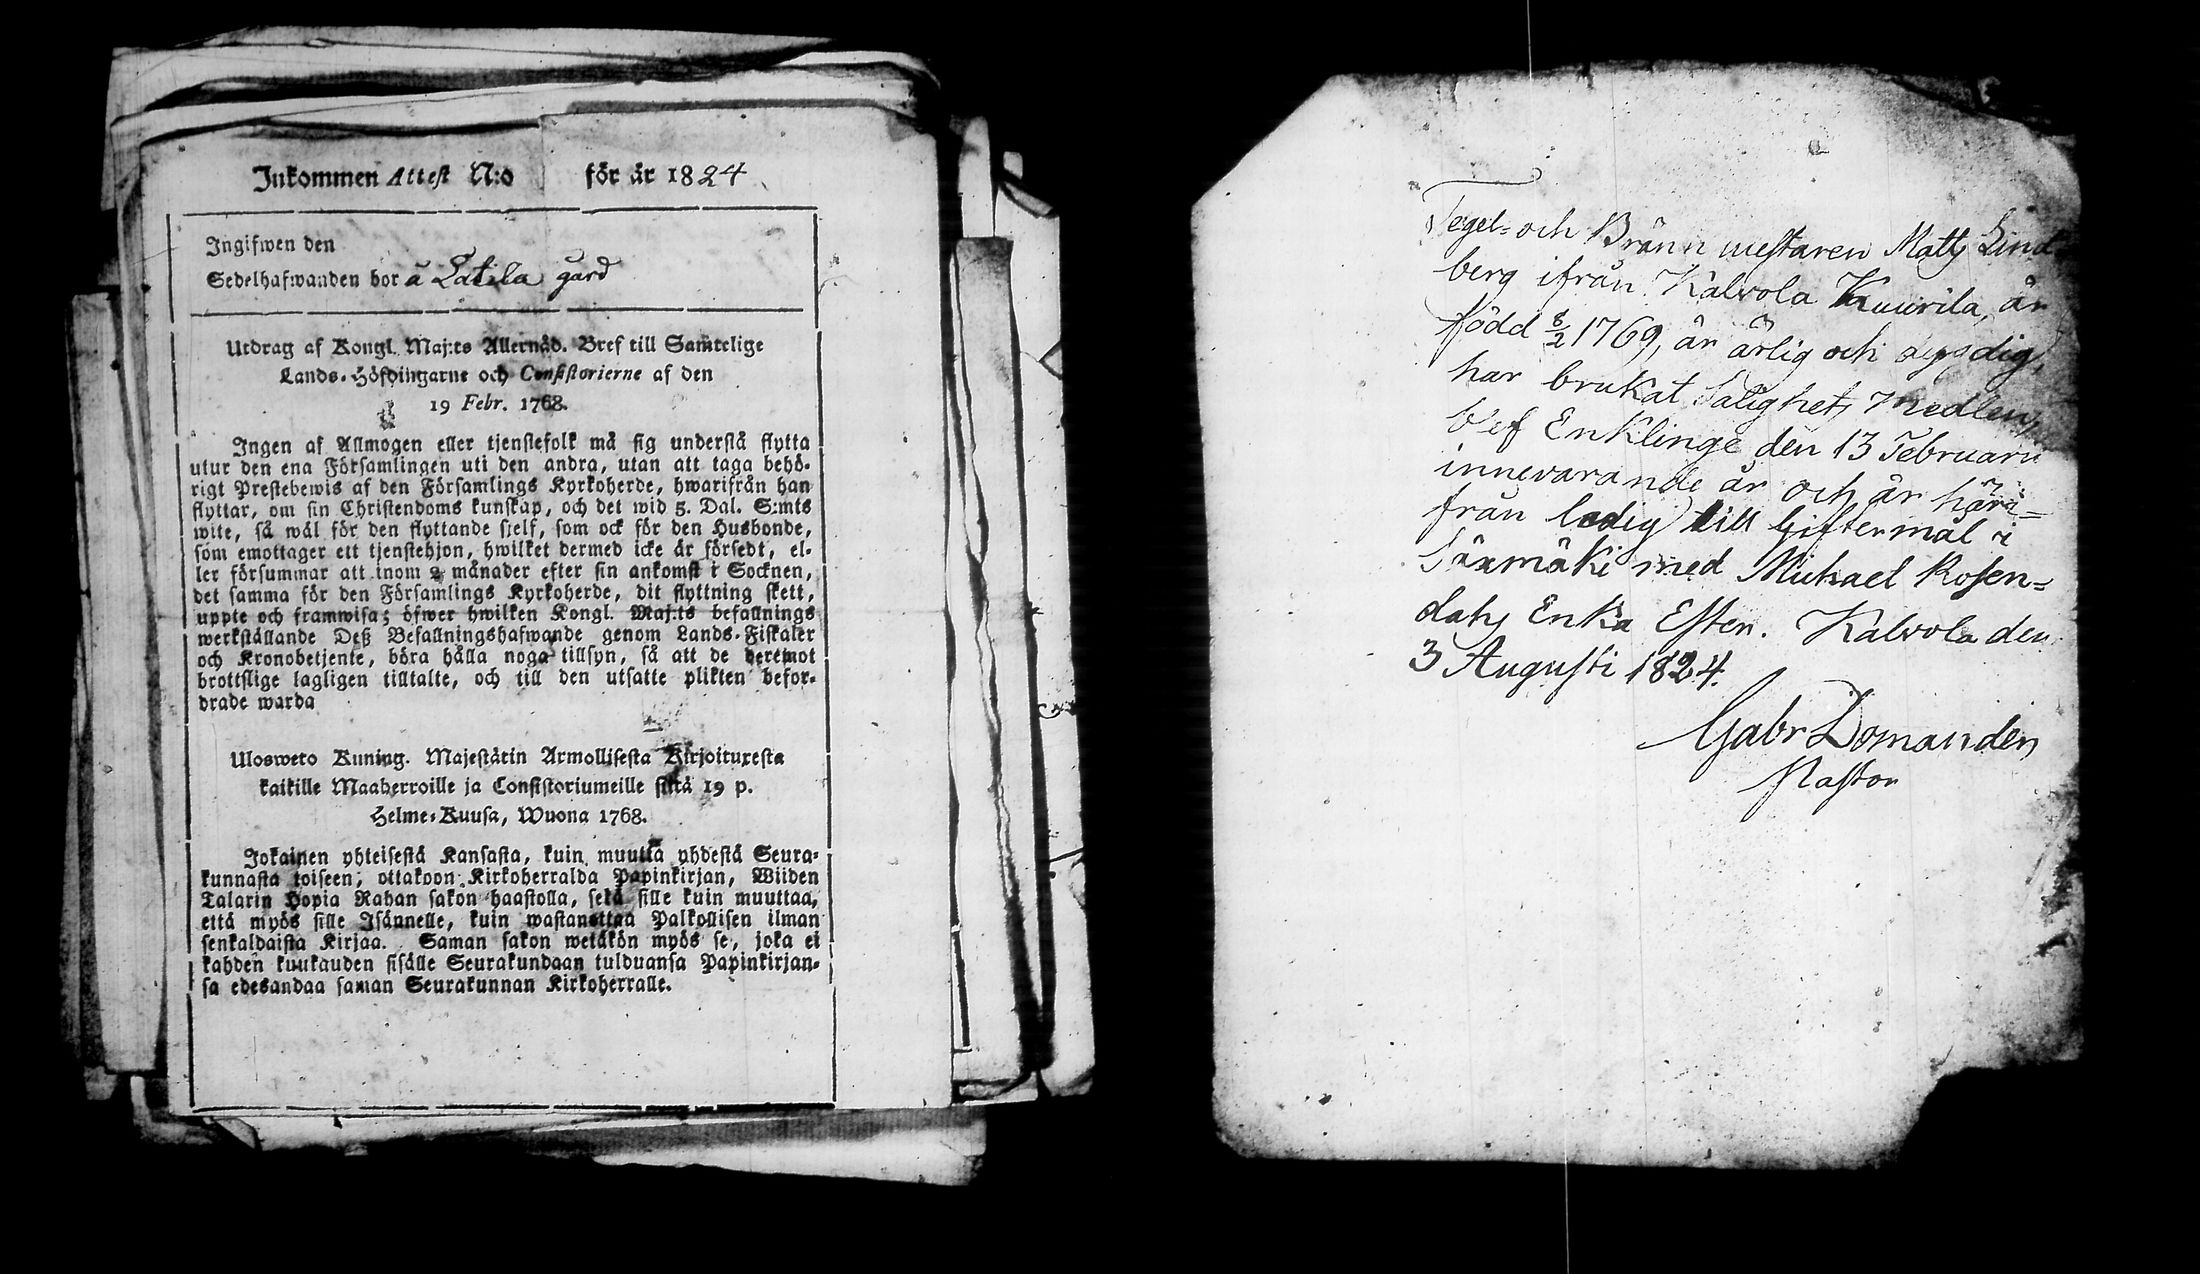 Inkommen Attest N:o för år 1824
Ingifwen den
Sedelhafwanden bor å Latila gård
Utdrag af Kongl. Maj:ts Allernåd. Bref till Samtelige
Lands-Höfdingarne och Consistorierne af den
19 Febr. 1768.
Ingen af Allmogen eller tjenstefolk må sig understå flytta
utur den ena Församlingen uti den andra, utan att taga behö-
rigt Prestebewis af den Församlings Kyrkoherde, hwarifrån han
flyttar, om sin Christendoms kunskap, och det wid 5. Dal. S:mts
wite, så wäl för den flyttande sjelf, som ock för den Husbonde,
som emottager ett tjenstehjon, hwilket dermed icke är försedt, el-
ler försummar att inom 2 månader efter sin ankomst i Socknen,
det samma för den Församlings Kyrkoherde, dit flyttning skett,
uppte och framwisa; öfwer hwilken Kongl. Maj:ts befallnings
werkställande Deß Befallningshafwande genom Lands-Fiskaler
och Kronobetjente, böra hålla noga tillsyn, så att de deremot
brottslige lagligen tilltalte, och till den utsatte plikten befor-
drade warda
Ulosweto Kuning. Majestätin Armollisesta Kirjoituxesta
kaikille Maaherroille ja Consistoriumeille siitä 19 p.
Helme-Kuusa, Wuona 1768.
Jokainen yhteisestä Kansasta, kuin muutta yhdestä Seura-
kunnasta toiseen, ottakoon Kirkoherralda Papinkirjan, Wiiden
Talarin Hopia Rahan sakon haastolla, sekä sille kuin muuttaa,
että myös sille Isännelle, kuin wastanottaa Palkollisen ilman
senkaldaista Kirjaa. Saman sakon wetäkön myös se, joka ei
kahden kuukauden sisälle Seurakundaan tulduansa Papinkirjan-
sa edesandaa saman Seurakunnan Kirkoherralle.
Tegel- och Bränn mestaren Matts Lind
berg ifrån Kalvola Kuurila, är
född 8/2 1769, är ärlig och
har brukat Salighets medlen
Enklinge den 13 Februarii
innevarande år och är häri-
från ledig till Giftermål i
Säxmäki med Mickael Rosen-
dahs Enka Ester. Kalvola den
3 Augusti 1824.
Gabr Domander
Pastor